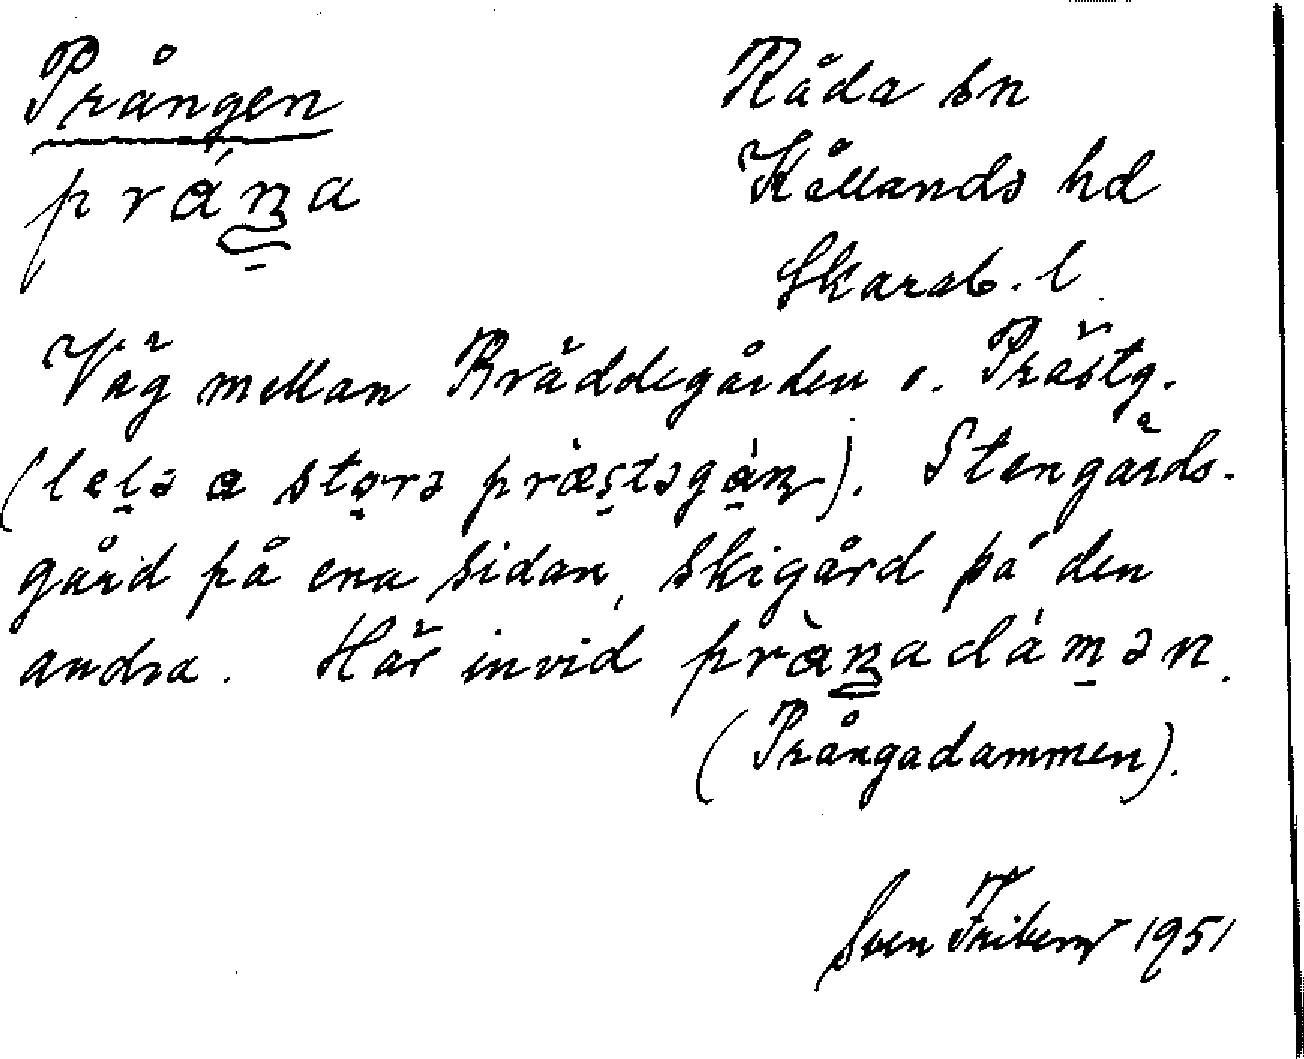 Prången
Råda sn
práŋa
Kållands hd
Skarab. l.
Väg mellan Bräddegården o. Prästg.
(lelə a storə præstəgáŋ). Stengärds-
gård på ena sidan, skigård på den
andra. Här invid pràŋadámən.
(Prångadammen).
Sven Friberg 1951